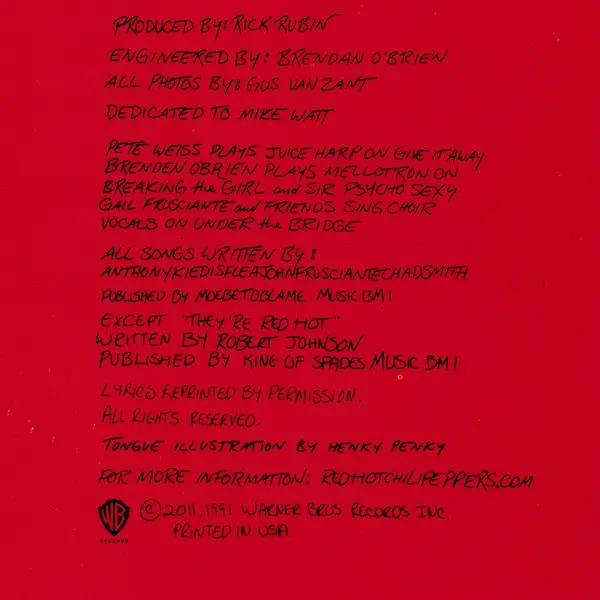 PRODUCED BY: RICK RUBIN
ENGINEERED BY: BRENDAN O'BRIEN
ALL PHOTOS BY: GUS VAN ZANT
DEDICATED TO MIKE WATT
PETE WEISS PLAYS JUICE HARP ON GIVE IT AWAY
BRENDEN O'BRIEN PLAYS MELLOTRON ON
BREAKING the GIRL and SIR PSYCHO SEXY
GAIL FRUSCIANTE and FRIENDS SING CHOIR
VOCALS ON UNDER the BRIDGE
ALL SONGS WRITTEN BY:
ANTHONYKIEDISFLEAJOHNFRUSCIANTECHADSMITH
PUBLISHED BY MOEBETOBLAME MUSIC BMI
EXCEPT "THEY'RE RED HOT"
WRITTEN BY ROBERT JOHNSON
PUBLISHED BY KING OF SPADES MUSIC BMI
LYRICS REPRINTED BY PERMISSION.
ALL RIGHTS RESERVED.
TONGUE ILLUSTRATION BY HENKY PENKY
FOR MORE INFORMATION: REDHOTCHILIPEPPERS.COM
WB RECORDS
© 2011, 1991 WARNER BROS. RECORDS INC.
PRINTED IN USA